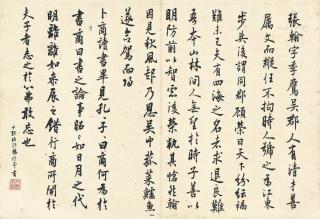 張翰字季鷹吳郡人有清才善
屬文而縱任不拘時人號之為江東
步兵後謂同郡顧榮曰天下紛紜禍
難未已夫有四海之名者求退良難
吾本山林間人無望於時子善以
明防前以智慮後榮執其愴然翰
因見秋風起乃思吳中菰菜鱸魚
遂命駕而歸
卜商讀書畢見孔子孔子曰商何為於
書商曰書之論事昭昭如日月之代
明離離如參辰之錯行商所聞於
夫子者志之於心弗敢忘也